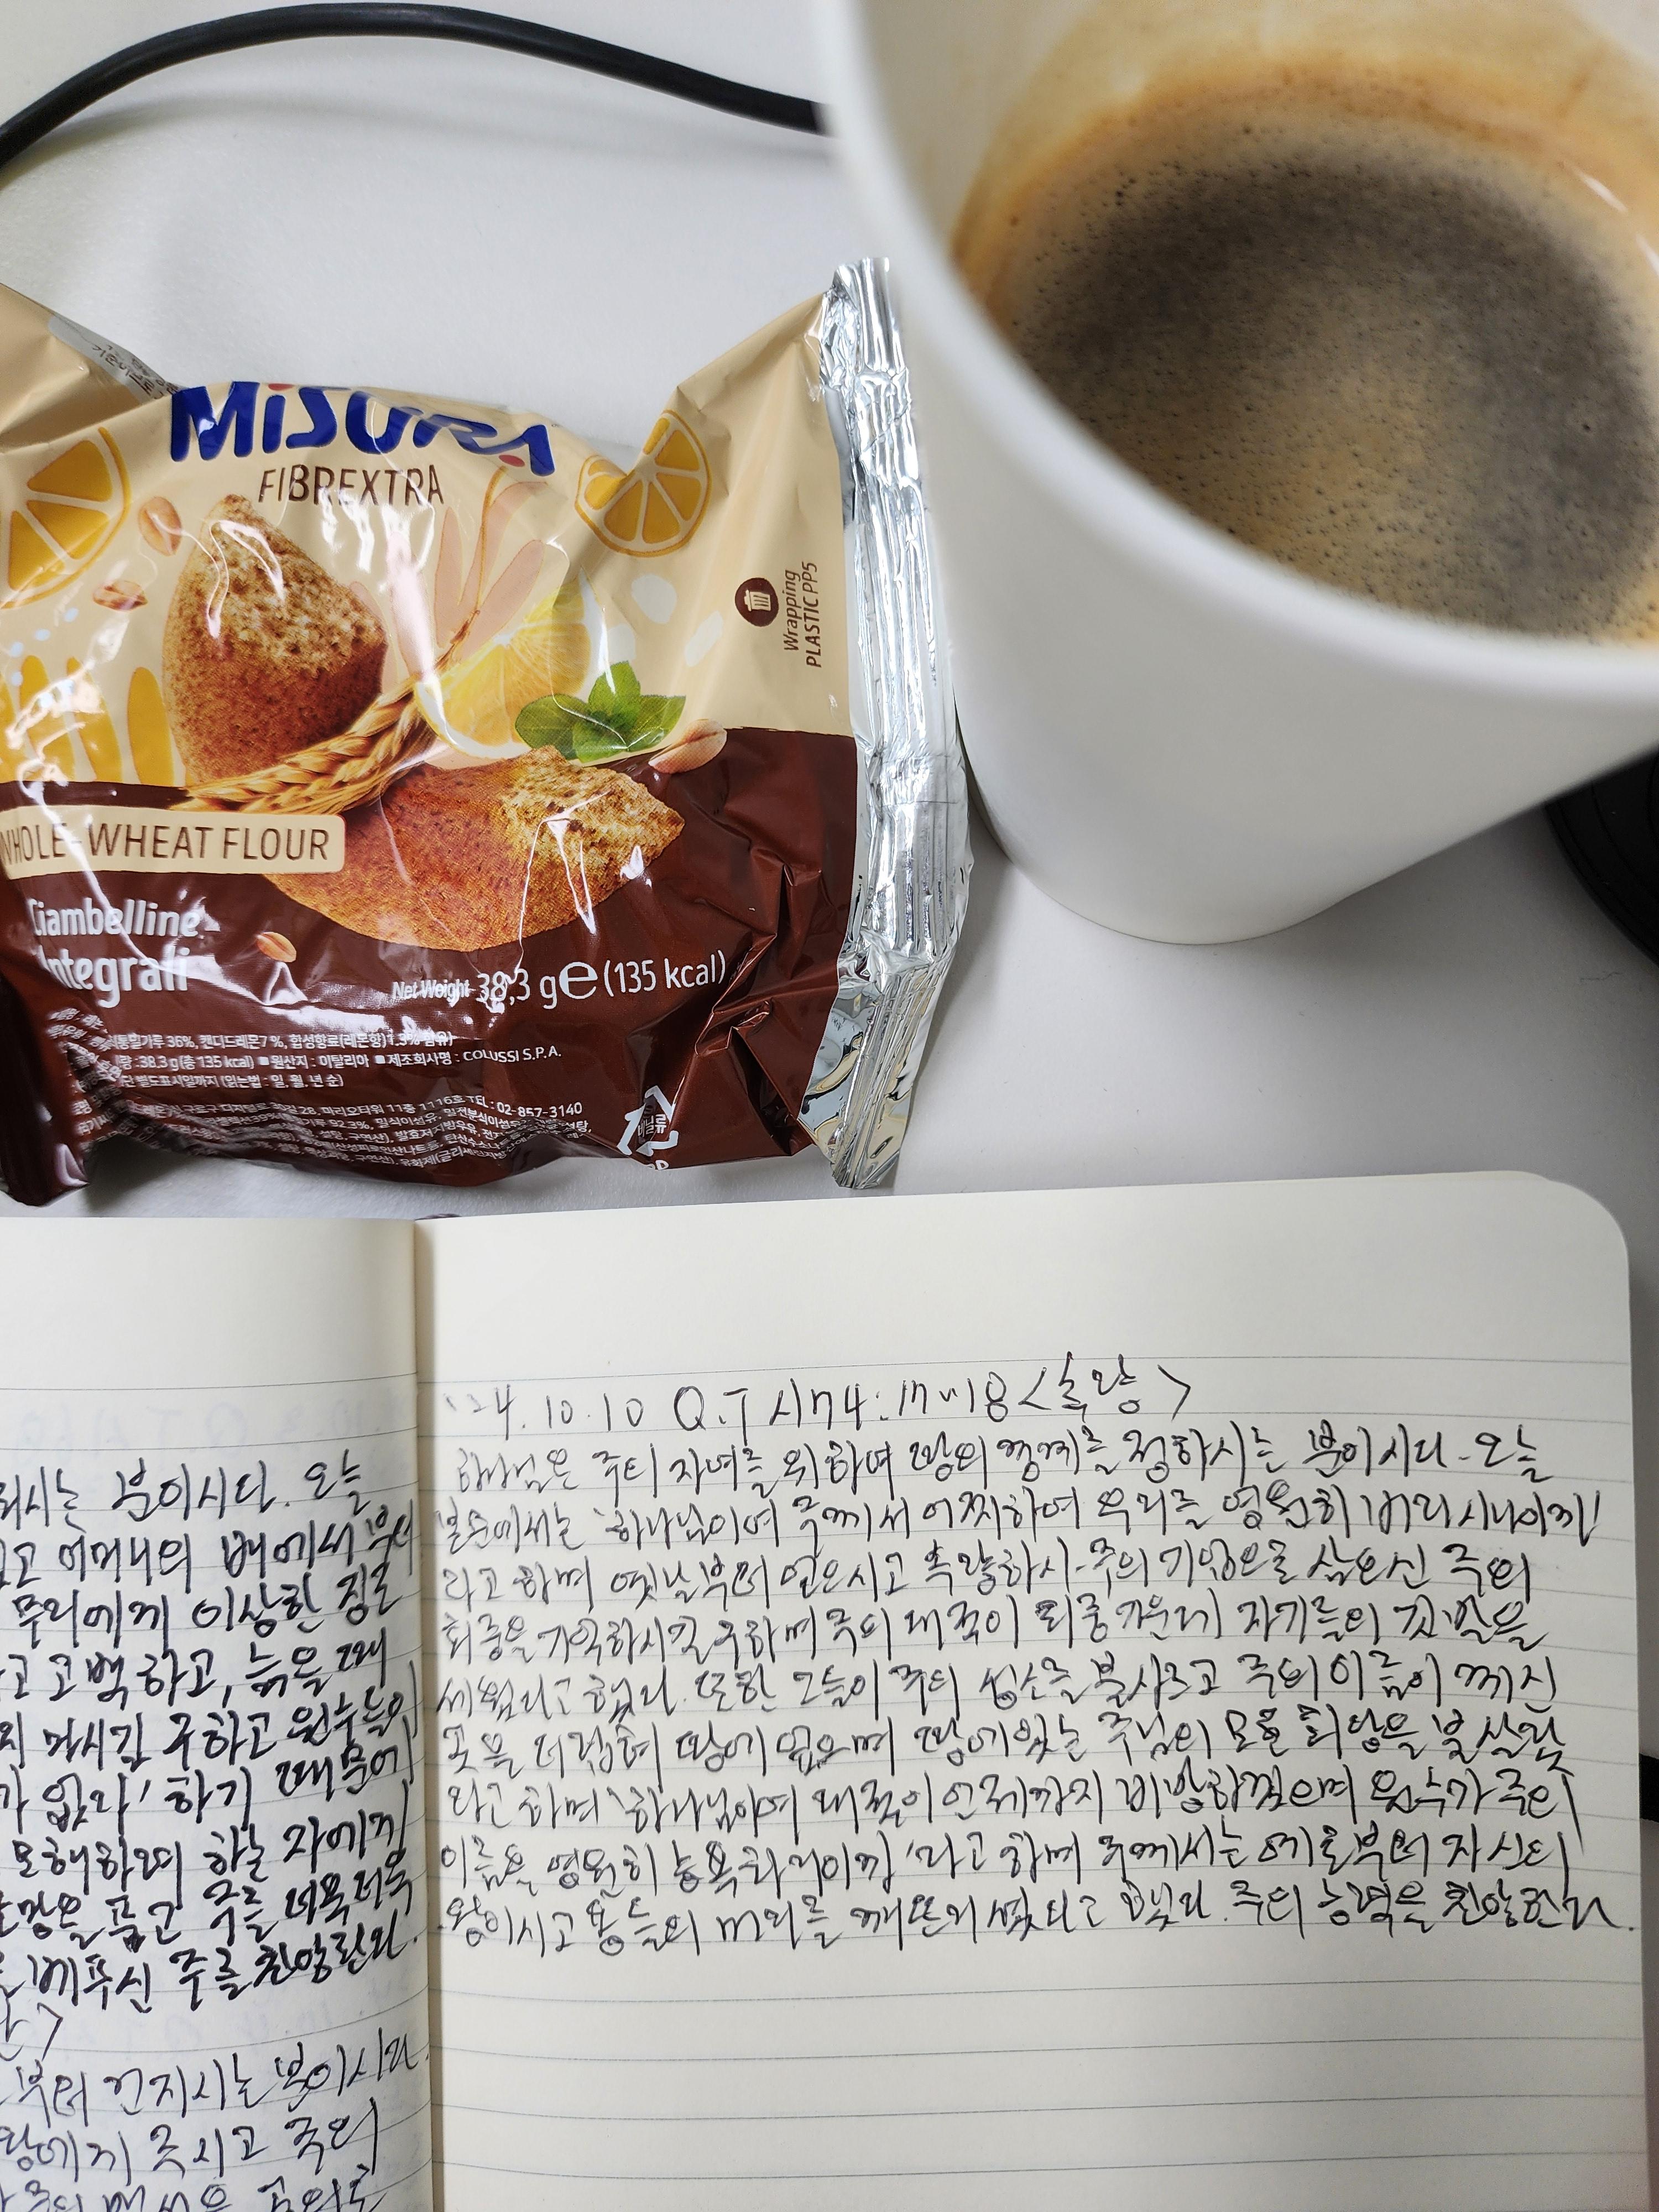 MISURA
FIBREXTRA
Wrapping
PLASTIC PP5
WHOLE-WHEAT FLOUR
Ciambelline
Integrali
Net Weight 38,3 g e (135 kcal)
통밀가루 36%, 캔디드레몬 7%, 합성향료(레몬향) 1.3% 함유)
량 : 38.3 g (총 135 kcal) ■ 원산지 : 이탈리아 ■ 제조회사명 : COLUSSI S.P.A.
별도표시일까지 (읽는법 : 일, 월, 년 순)
구로구 디지털로 28, 마리오타워 11층 1116호 TEL : 02-857-3140
비닐류
'24. 10. 10 Q.T 시74:1절~18 <속량>
하나님은 주의 자녀를 위하여 땅의 경계를 정하시는 분이시다. 오늘
본문에서는 '하나님이여 주께서 어찌하여 우리를 영원히 버리시나이까'
라고 하며 옛날부터 얻으시고 속량하사 주의 기업으로 삼으신 주의
회중을 기억하시길 구하며 주의 대적이 회중 가운데 자기들의 깃발을
세웠다고 했다. 또한 그들이 주의 성소를 불사르고 주의 이름이 계신
곳을 더럽혀 땅에 엎으며 땅에 있는 주님의 모든 회당을 불살랐
라고 하며 '하나님이여 대적이 언제까지 비방하겠으며 원수가 주의
이름을 영원히 능욕하리이까'라고 하며 주께서는 예로부터 자신의
왕이시고 용들의 머리를 깨뜨리셨다고 했다. 주의 능력을 찬양한다.
리시는 분이시다. 오늘
고 어머니의 배에서부터
무리에게 이상한 징조
고 고백하고, 늙을 때
지 마시길 구하고 원수들이
가 없다' 하기 때문에
모해하려 하는 자에게
소망을 품고 주를 더욱더욱
베푸신 주를 찬양한다.
부터 건지시는 분이시다.
왕에게 주시고 주의